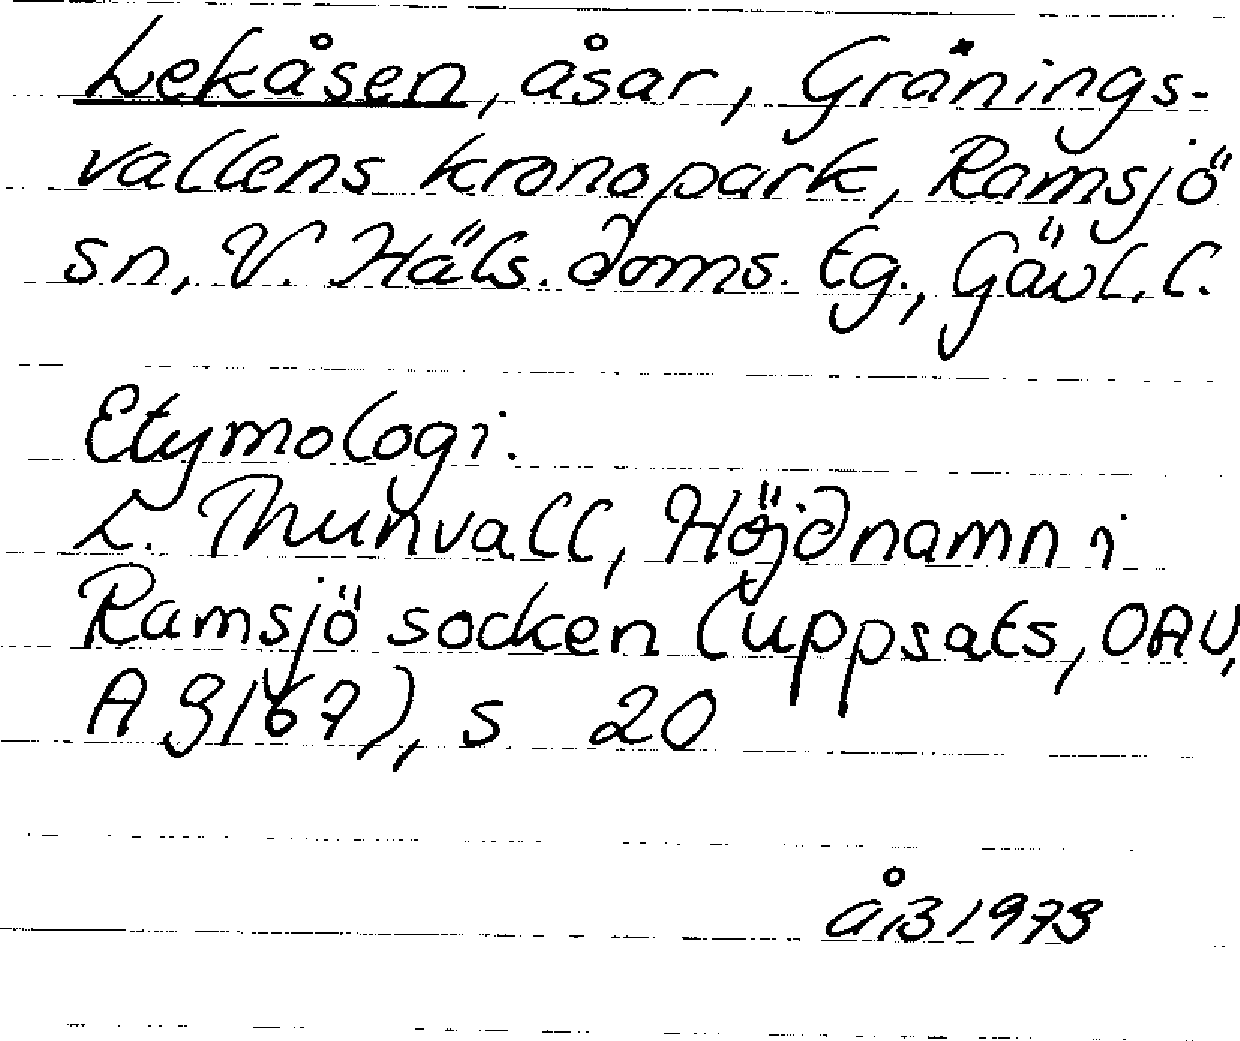 Lekåsen, åsar, Grånings-
vallens kronopark, Ramsjö
sn, V. Häls. doms. tg., Gävl. l.
Etymologi.
L. Thunvall, Höjdnamn i
Ramsjö socken (uppsats, OAU,
A 9167), s 20
åB 1973